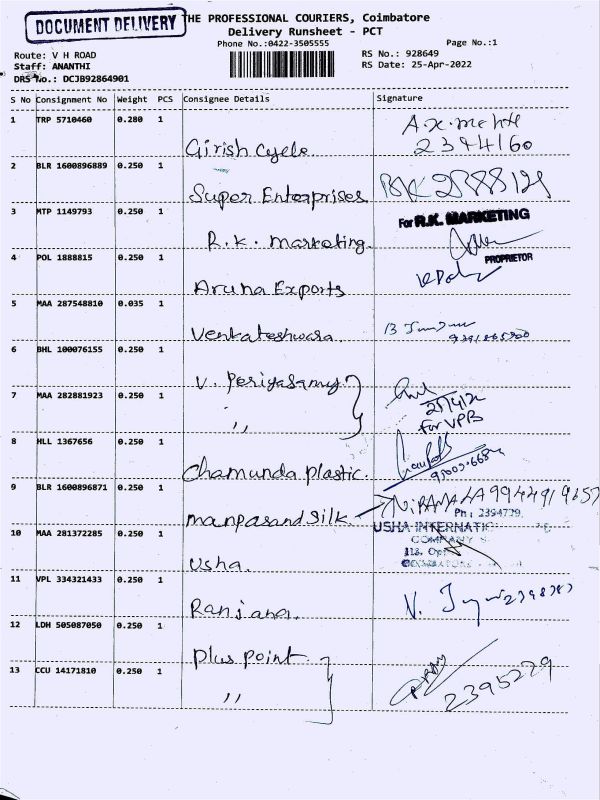 DOCUMENT DELIVERY
THE PROFESSIONAL COURIERS, Coimbatore
Delivery Runsheet - PCT
Phone No.:0422-3505555
Page No.:1
Route: V H ROAD
RS No.: 928649
Staff: ANANTHI
RS Date: 25-Apr-2022
DRS No.: DCJB92864901
S No Consignment No Weight PCS Consignee Details Signature
1 TRP 5710460 0.280 1 Girish Cycle. 2394160
2 BLR 1600896889 0.250 1 Super Enterprises
3 MTP 1149793 0.250 1 R.K. Marketing. For R.K. MARKETING
PROPRIETOR
4 POL 1888815 0.250 1 Aruna Exports
5 MAA 287548810 0.035 1 Venkateshwara.
6 BHL 100076155 0.250 1 V. Periyasamy
7 MAA 282881923 0.250 1 ,, 25/4/22
For VPB
8 HLL 1367656 0.250 1 Chamunda plastic.
9 BLR 1600896871 0.250 1 manpasand silk NIRAMALA 9944919657
Ph: 2394739
USHA INTERNATI
COMPANY
118, Opp
COIMBATORE
10 MAA 281372285 0.250 1 Usha.
11 VPL 334321433 0.250 1 Ranjana.
12 LDH 505087050 0.250 1 plus point
13 CCU 14171810 0.250 1 ,, 2395229